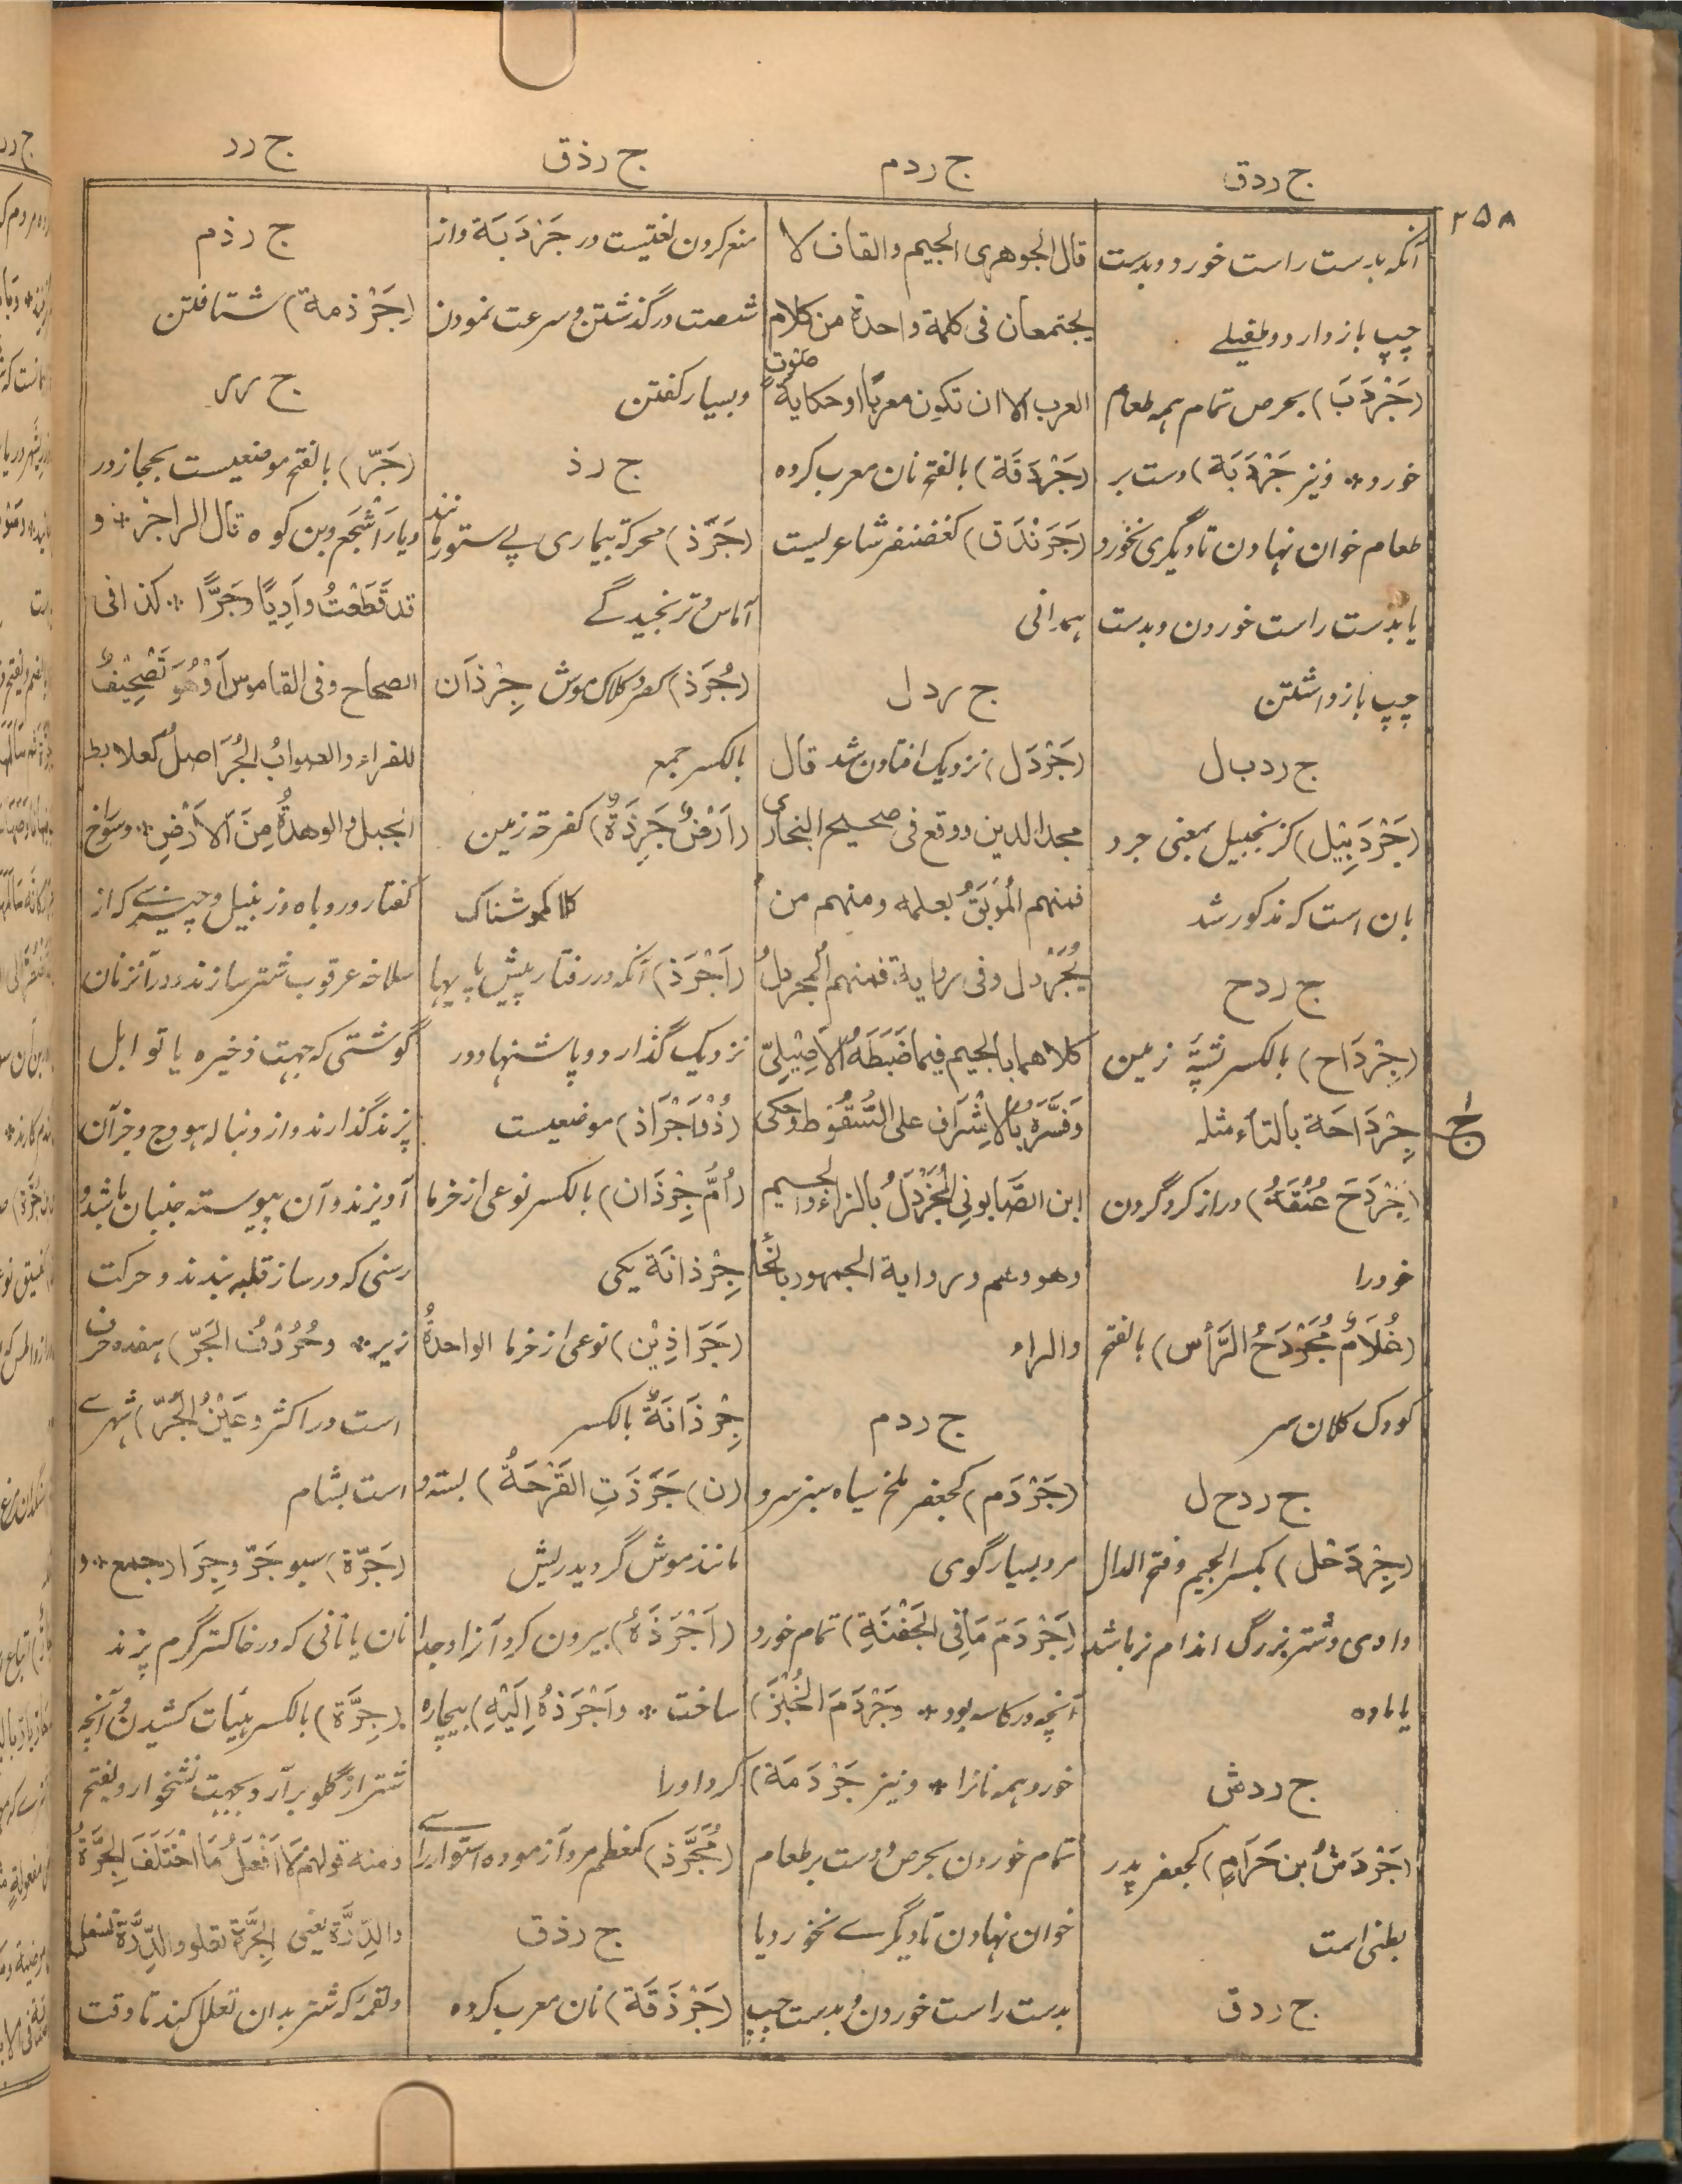 ج ردق
ج ردم
ج رذق
ج رر
۲۵۸
آنکه بدست راست خورد و بدست
چپ باز دارد و طفیلے
(جَرْدَبَ) بحرص تمام همه طعام
خورد * و نیز جَرْدَبَة) دست بر
طعام خوان نهادن تا دیگری نخورد
یا بدست راست خوردن و بدست
چپ باز داشتن
ج ردب ال
(جَرْدَبِیْل) کزنجبیل بمعنی جرد
بان است که مذکور شد
ج ردح
(جِرْدَاح) بالکسر پشتهٔ زمین
جِرْدَاحَة بالتاء مثله
(جَرْدَحَ عُنُقَهُ) دراز کرد گردن
خود را
(غُلَامٌ مُجَرْدَحُ الرَّأْس) بالفتح
کودک کلان سر
ج ردح ل
(جِرْدَحْل) بکسر الجیم و فتح الدال
وادی و شتر بزرگ اندام نر باشد
یا ماده
ج ردش
(جَرْدَشُ بن حَرَامٍ) کجعفر پدر
بطنی است
ج ردق
قال الجوهری الجیم والقاف لا
یجتمعان فی کلمة واحدة من کلام
العرب الا ان تکون معربًا او حکایة صوت
(جَرْدَقَة) بالفتح نان معرب کرده
(جَرَنْدَق) کغضنفر شاعر لیست
همدانی
ج ردل
(جَرْدَل) نزدیک افتادن شد قال
مجد الدین ووقع فی صحیح البخاری
فمنهم المُوْبَقُ بعمله ومنهم من
یُجَرْدل وفی روایة فمنهم المجردلُ
کلاهما بالجیم فیما ضَبَطَهُ الاَصِیْلِیّ
وَفَسَّرَهُ بالاِشْرَاف علی السُّقُوط وحَکی
ابن الصَّابونی المُجَزْدَلُ بالزاء والجیم
وهو وهم وروایة الجمهور بالخا
والراء
ج ردم
(جَرْدَم) کجعفر ملخ سیاه سبز سر و
مرد بسیار گوی
(جَرْدَمَ مَا فِی الجَفْنَةِ) تمام خورد
آنچه در کاسه بود * وجَرْدَمَ الخُبْزَ)
خورد همه نانرا * و نیز جَرْدَمَة)
تمام خوردن بحرص و دست بر طعام
خوان نهادن تا دیگرے نخورد یا
بدست راست خوردن و بدست چپ
منع کردن لغتیست در جَرْدَبَة و از
شصت در گذشتن و سرعت نمودن
و بسیار گفتن
ج رذ
(جَرَذ) محرکة بیماری پے ستور مانند
آماس و ترنجیدگے
(جُرَذ) کصرد کلاکموش جِرْذَان
بالکسر جمع
(اَرْضٌ جَرِذَةٌ) کفرحة زمین
کلاکموشناک
(اَجْرَذ) آنکه در رفتار پیش پایها
نزدیک گذارد و پاشنها دور
(ذُوْ اَجْرَاذ) موضعیست
(اُمُّ جِرْذَان) بالکسر نوعی از خرما
جِرْذانَة یکی
(جَرَاذِیْن) نوعی از خرما الواحدةُ
جِرْذَانَةٌ بالکسر
(ن) جَرَذَتِ القَرْحَةُ) بسته و
مانند موش گردید ریش
(اَجْرَذَهُ) بیرون کرد آنرا و جدا
ساخت * واَجْرَذهُ اِلَیْهِ) بیچاره
کرد او را
(مُجَرَّذ) کمعظم مرد آزموده استوار رائے
ج رذق
(جَرْذَقَة) نان معرب کرده
ج رذم
(جَرْذمة) شتافتن
ج رر
(جَرّ) بالفتح موضعیست بحجاز در
دیار اَشْجَع و بن کوه قال الراجز * و
قد قَطَعْتُ وادِیًا وَجَرًّا * کذا فی
الصحاح وفی القاموس أَوْ هُوَ تَصْحِیْفٌ
للفراء والصوابُ الجُرَاصِلُ کعلابط
الجبل والوهدةُ مِنَ الاَرْضِ * و سوراخ
کفتار و روباه و زنبیل و چیزے که از
سلاخه عرقوب شتر سازند و در آن زنان
گوشتی که جهت ذخیره یا توابل
پزند گذارند و از دنباله هودج و جز آن
آویزند و آن پیوسته جنبان باشد و
رسنی که در ساز قلبه بندند و حرکت
زیر * وحُرُوْفُ الجَرّ) هفده حرف
است در اکثر و عَیْنُ الجَرّ) شهرے
است بشام
(جَرَّة) سبو جَرّ و جِرَار جمع * و
نان یا نانی که در خاکستر گرم پزند
(جِرَّة) بالکسر هیئات کشیدن و آنچه
شتر از گلو برآرد بجهت نشخوار و یفتح
ومنه قولهم لا اَفْعَلُ مَا اخْتَلَفَ الجِرَّةُ
والدِّرَّة یعنی الجِرَّة تعلو والدِّرَّة تسفل
و لقمه که شتر بدان تعلل کند تا وقت
ج